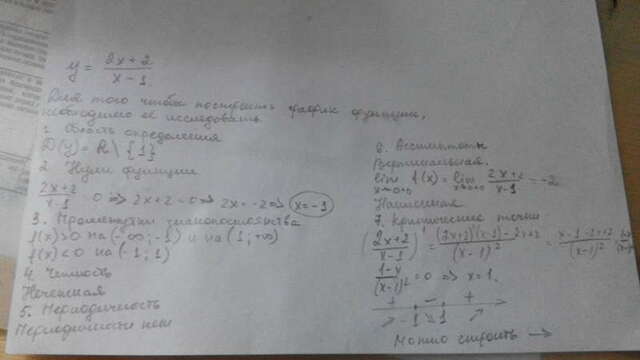 y = (2x+2)/(x-1)
Для того чтобы построить график функции,
необходимо её исследовать
1. Область определения
D(y) = R \ {1}
2. Нули функции
(2x+2)/(x-1) = 0 => 2x+2=0 => 2x=-2 => x=-1
3. Промежутки знакопостоянства
f(x)>0 на (-∞;-1) и на (1;+∞)
f(x)<0 на (-1;1)
4. Четность
Нечетная
5. Периодичность
Периодичности нет
6. Ассимптоты
Вертикальная.
lim f(x) = lim (2x+2)/(x-1) = -2
Наклонная
7. Критические точки
((2x+2)/(x-1))' = ((2x+2)'(x-1)-2x+2)/(x-1)² = (x-1-2x+2)/(x-1)²
(1-x)/(x-1)² = 0 => x=1.
+ - +
-1 1
Можно строить →